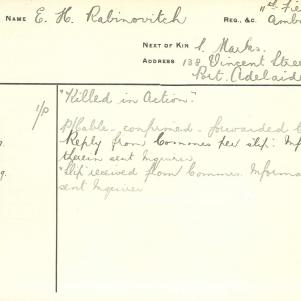 NAME E. H. Rabinovitch
REG., &C. 1st Fie
Amb
NEXT OF KIN S. Marks.
ADDRESS 138 Vincent Stree
Prt. Adelaide
1/P "Killed in Action."
P/Cable - confirmed - forwarded
Reply from Commons per slip: Inf
therein sent Inquirer
9. "Slip received from Commons. Informa
sent Inquirer